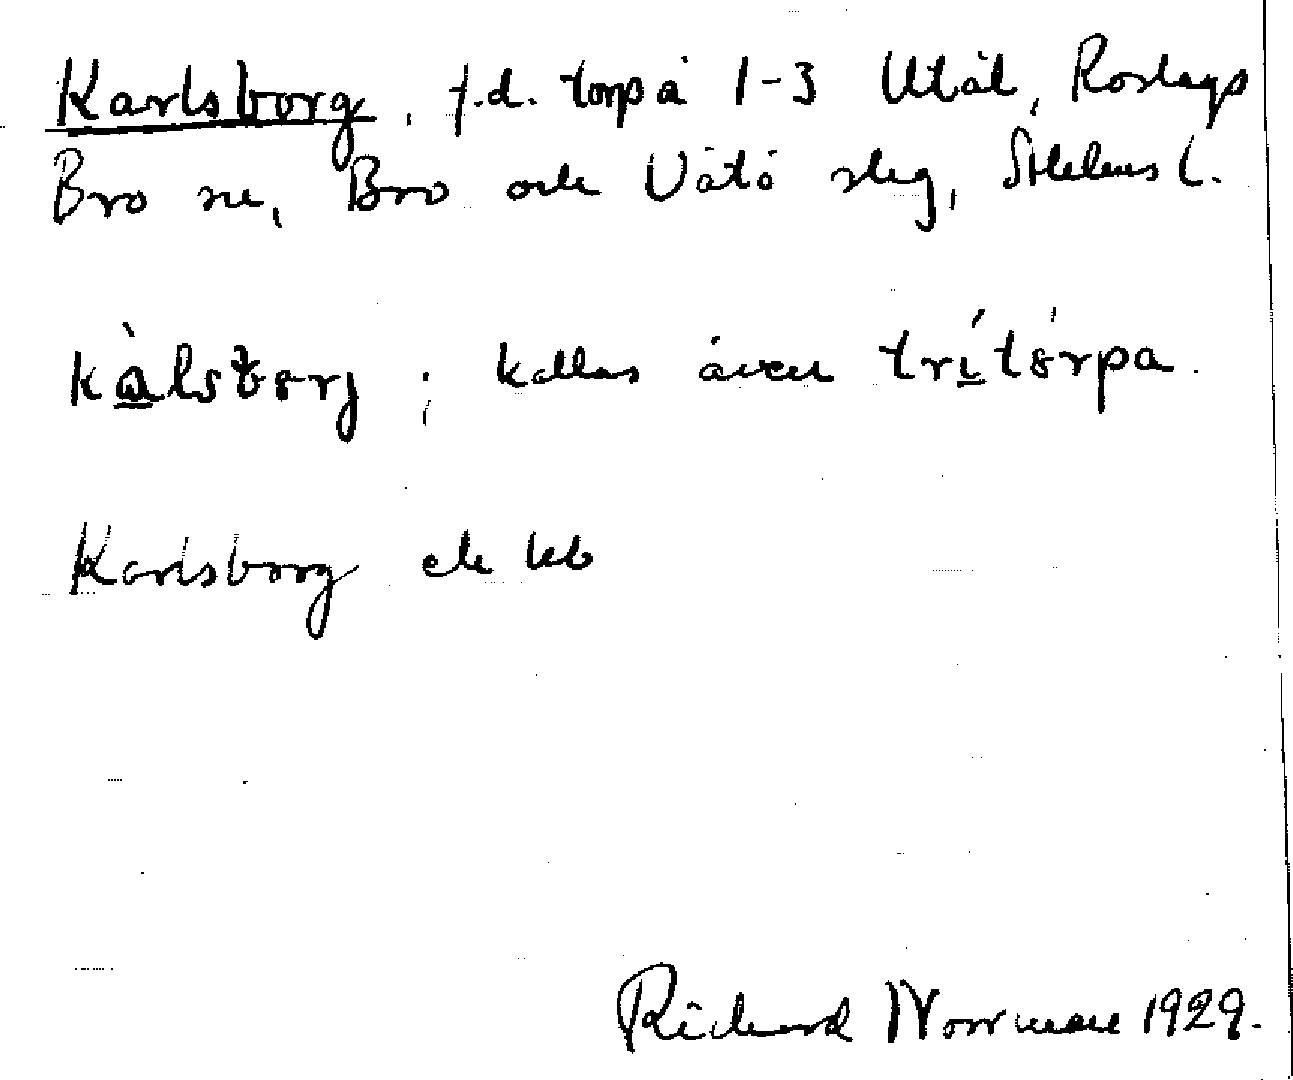 Karlsborg, f.d. torp å 1-3 Utål, Roslags
Bro sn, Bro och Vätö slg, Sthlms l.
kàlsborj ; kallas även trítórpa.
Karlsborg ek kb
Richard Norrman 1929.